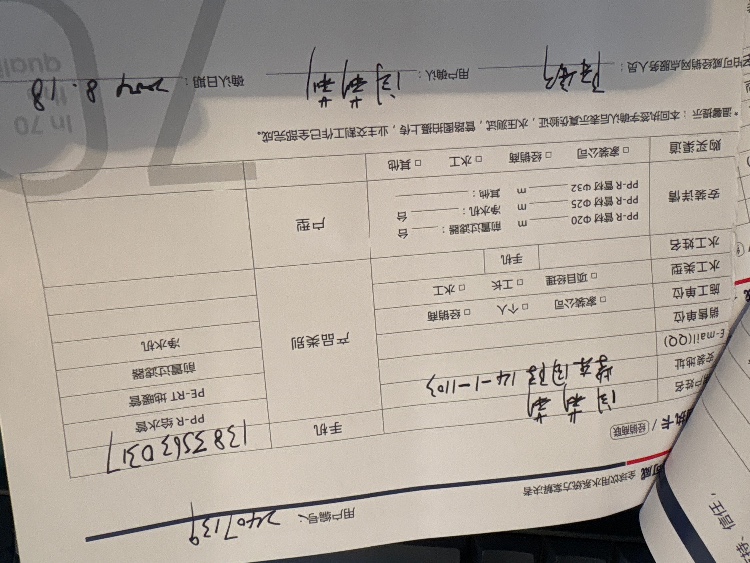 全球饮用水系统方案解决者
用户编号：2407139
执卡 / 经销商联
户姓名
手机 13835630317
安装地址 14-1-1103
产品类别 PP-R 给水管
E-mail(QQ)
PE-RT 地暖管
销售单位
前置过滤器
施工单位 □ 家装公司 □ 个人 □ 经销商
净水机
水工类型 □ 项目经理 □ 工长 □ 水工
水工姓名 手机
安装详情 PP-R 管材 Φ20 m 前置过滤器： 台
PP-R 管材 Φ25 m 净水机： 台
PP-R 管材 Φ32 m 其他：
户型
购买渠道 □ 家装公司 □ 经销商 □ 水工 □ 其他
* 温馨提示：本回执签字确认后表示真伪验证，水压测试，管路图拍摄上传，业主交割工作已全部完成。
伯可威经销网点服务人员：
用户确认：
确认日期：2024.8.18
信任，